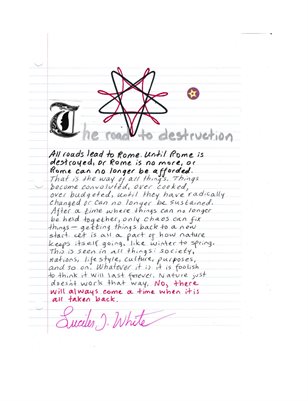 The road to destruction
All roads lead to Rome. Until Rome is
destroyed, or Rome is no more, or
Rome can no longer be afforded.
That is the way of all things. Things
become convoluted, over cooked,
over budgeted, until they have radically
changed or can no longer be sustained.
After a time where things can no longer
be held together, only chaos can fix
things - getting things back to a new
start. It is all a part of how nature
keeps itself going, like winter to spring.
This is seen in all things: society,
nations, lifestyle, culture, purposes,
and so on. Whatever it is it is foolish
to think it will last forever. Nature just
doesn't work that way. No, there
will always come a time when it is
all taken back.